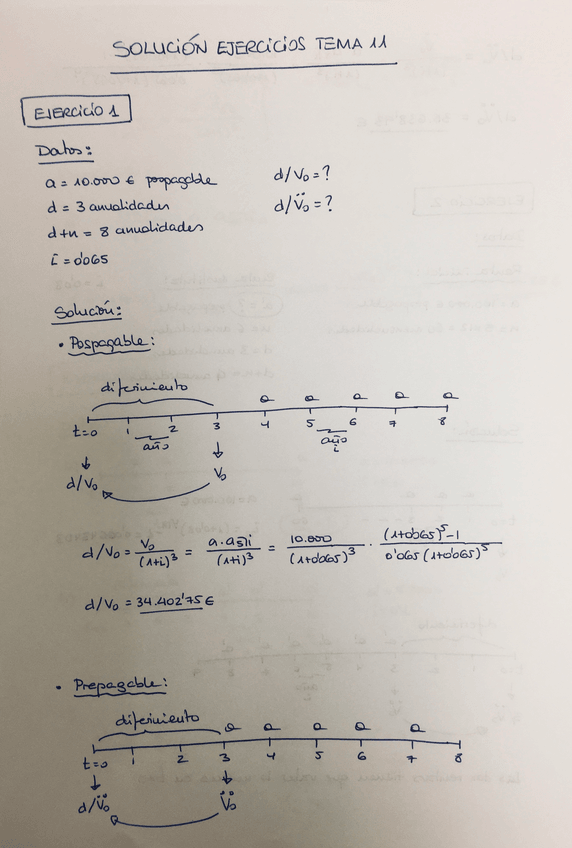 SOLUCIÓN EJERCICIOS TEMA 11
EJERCICIO 1
Datos:
a = 10.000 € pospagable
d/V₀ = ?
d = 3 anualidades
d/V̈₀ = ?
d+n = 8 anualidades
i = 0'065
Solución:
• Pospagable:
diferimiento
a a a a a
t=0 1 2 3 4 5 6 7 8
año año
i
d/V₀ V₀
d/V₀ = V₀/(1+i)³ = a·a5⌉i/(1+i)³ = 10.000/(1+0'065)³ · (1+0'065)⁵-1/0'065(1+0'065)⁵
d/V₀ = 34.402'75 €
• Prepagable:
diferimiento
a a a a a
t=0 1 2 3 4 5 6 7 8
d/V̈₀ V̈₀